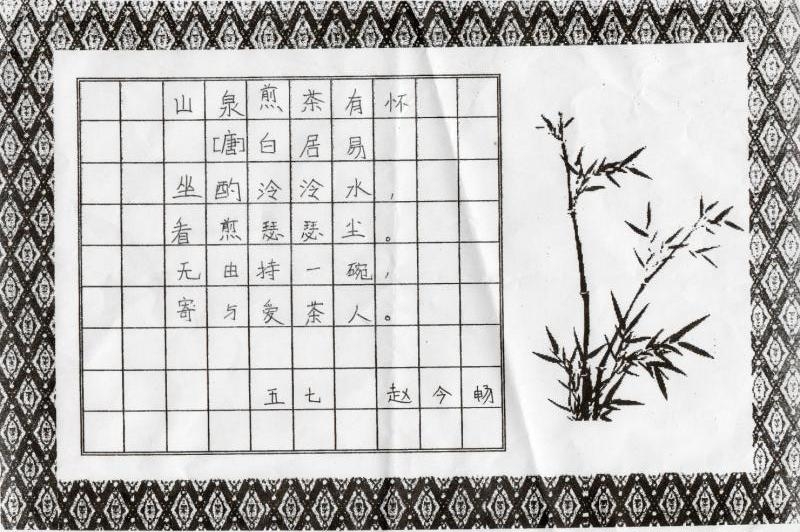 山泉煎茶有怀
[唐]白居易
坐酌泠泠水,
看煎瑟瑟尘。
无由持一碗,
寄与爱茶人。
五七 赵今畅